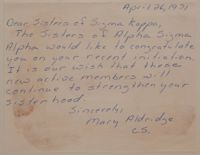 April 26, 1971
Dear Sisters of Sigma Kappa,
The Sisters of Alpha Sigma
Alpha would like to congratulate
you on your recent initiation.
It is our wish that these
new active members will
continue to strengthen your
sisterhood.
Sincerely,
Mary Aldridge
C.S.